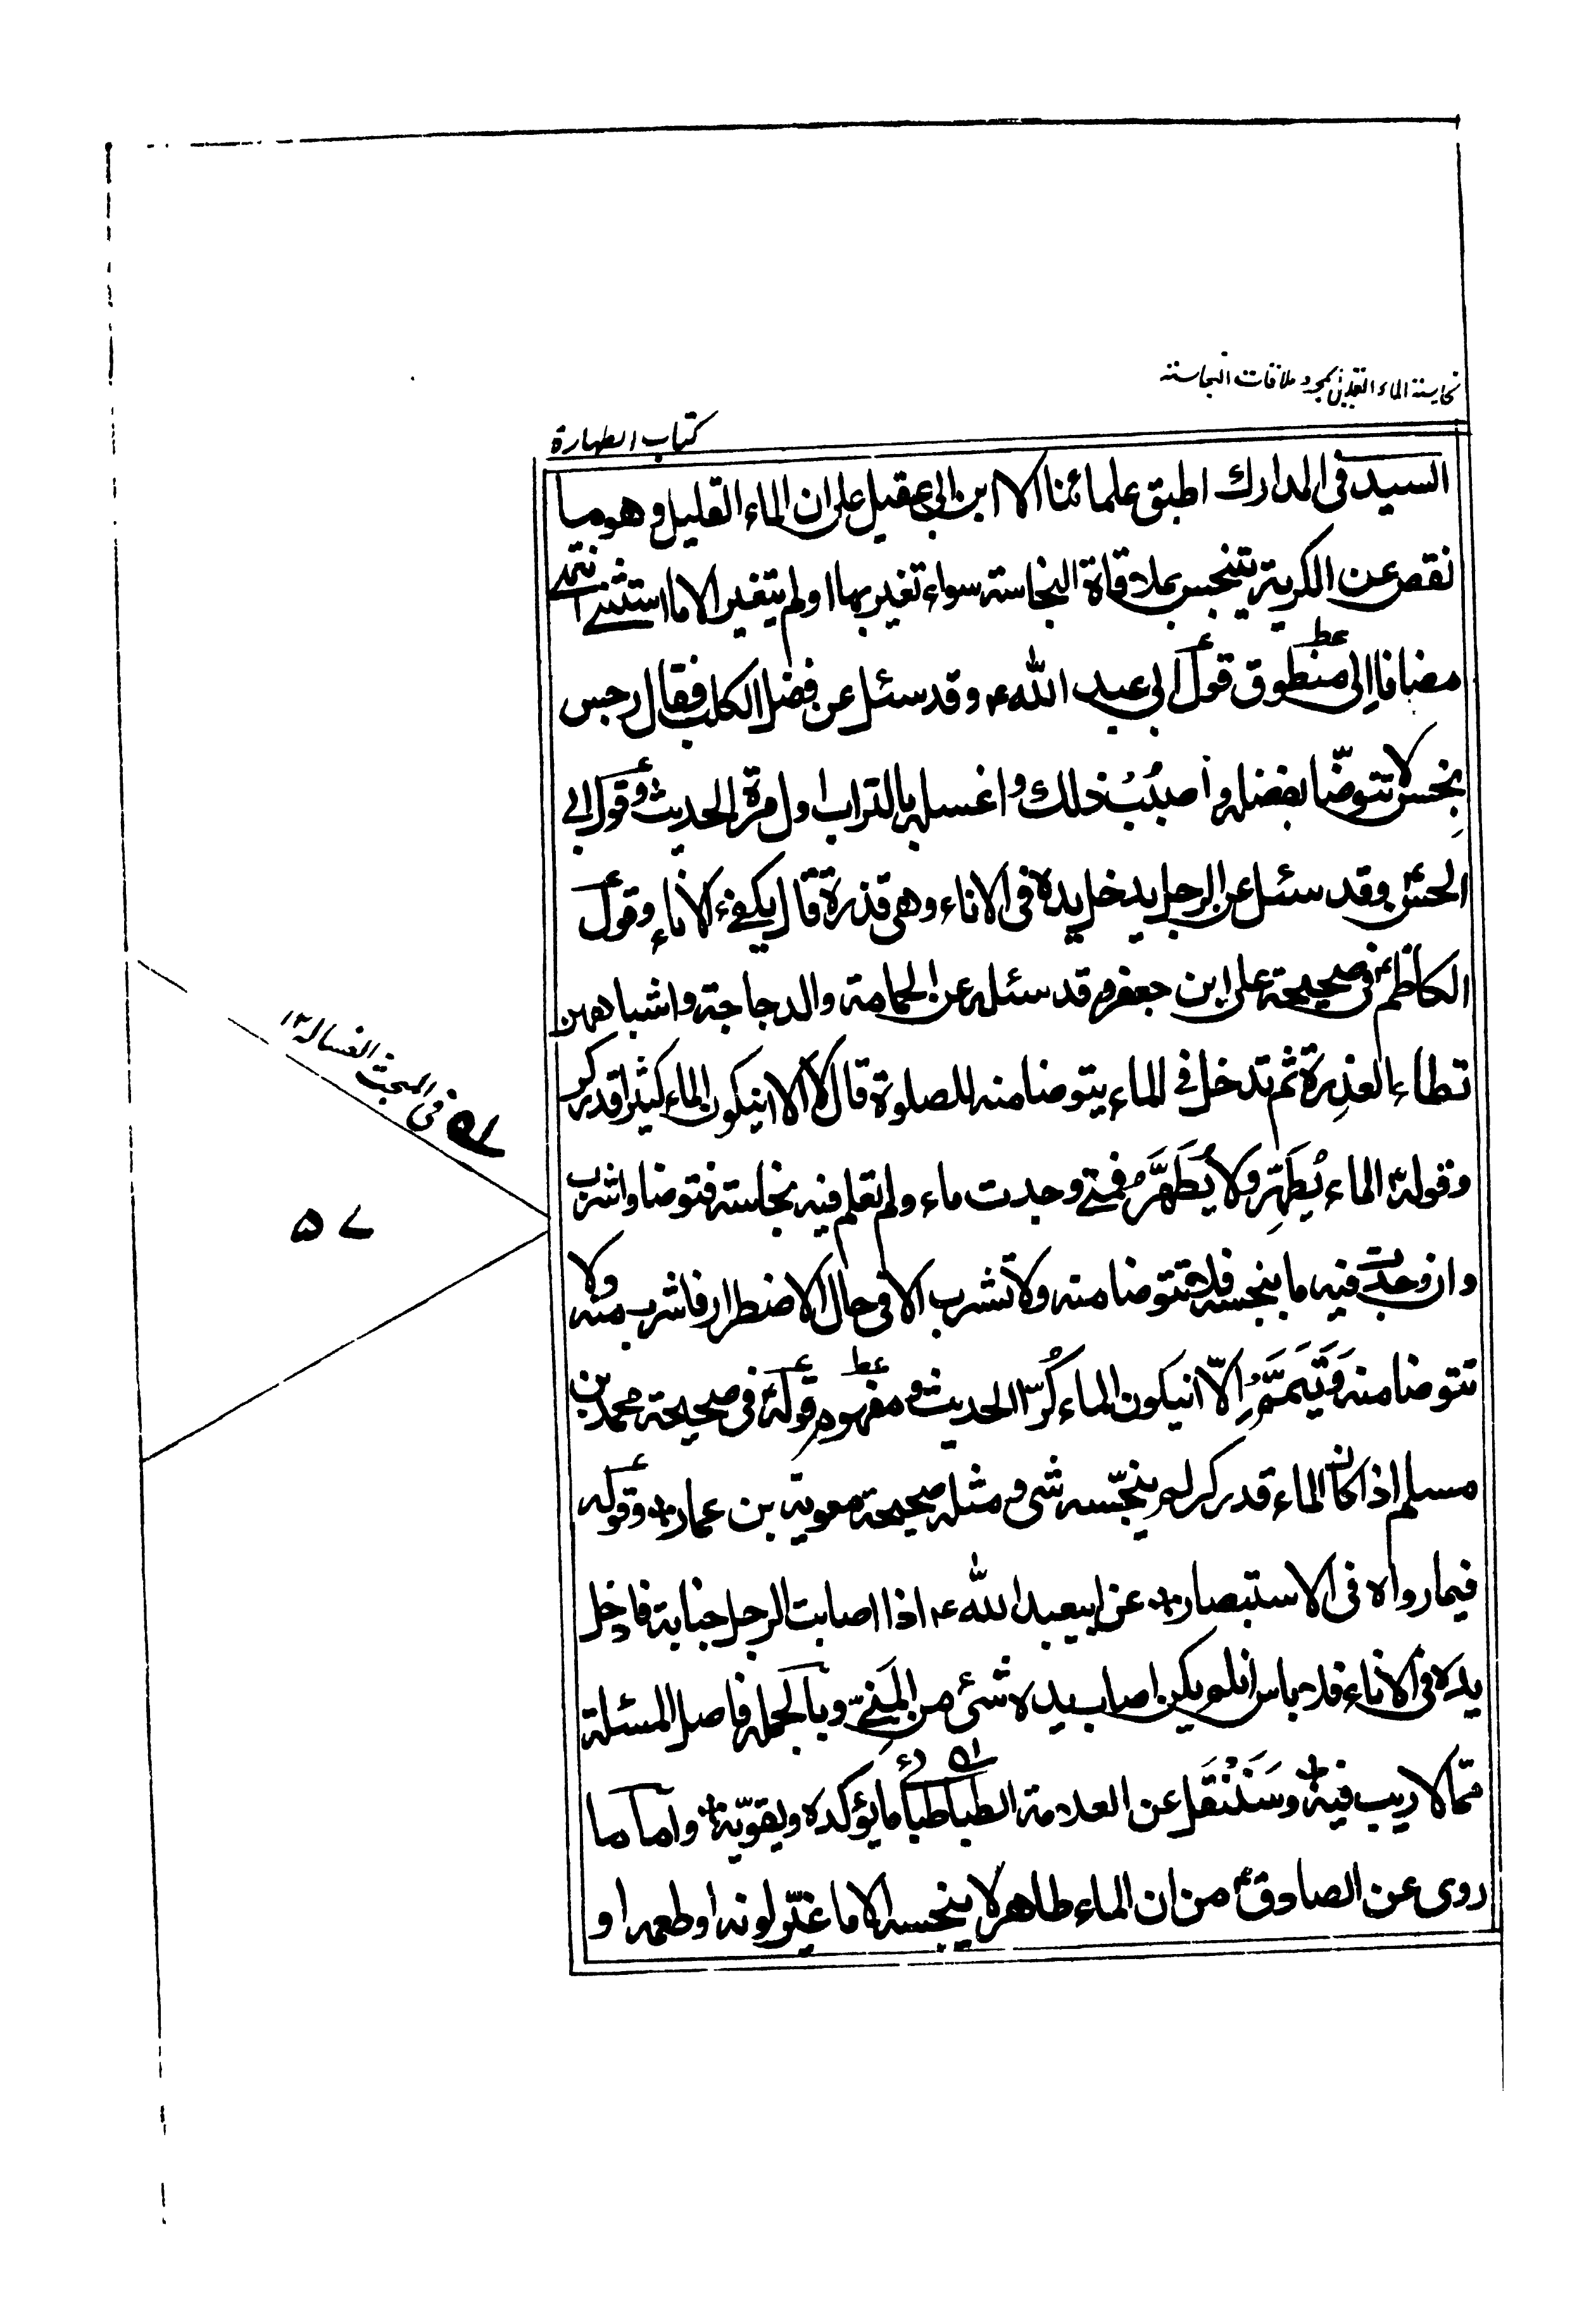 نجاسة الماء القليل بمجرد ملاقات النجاسة
كتاب الطهارة
السيد فى المدارك اطبق علمائنا الا ابن ابى عقيل على ان الماء القليل و هو ما
نقص عن الكرية يتنجس بملاقاة النجاسة سواء تغير بها او لم يتغير الا ما استثنى انتهى
مضافا الى منطوق قول ابى عبد الله ع و قد سئل عن فضل الكلب فقال رجس
نجس لا تتوضأ بفضله و أصبُبْ ذلك و اغسله بالتراب اول مرة الحديث و قول ابى
الحسن ع و قد سئل عن الرجل يدخل يده فى الاناء و هى قذرة قال يكفئ الاناء و قول
الكاظم ع فى صحيحة على ابن جعفر و قد سئله عن الحمامة و الدجاجة و اشباههن
تطاء العذِرة ثم تدخل فى الماء يتوضا منه للصلوة قال لا الا انيكون الماء كثيرا قدر كر
و قوله ع الماء يُطَهِّر و لا يُطَهَّرُ فمتى وجدت ماء و لم تعلم فيه نجاسة فتوضا و اشرب
و ان وجدت فيه ما ينجسه فلا تتوضا منه و لا تشرب الا فى حال الاضطرار فاشرب منه و لا
تتوضا منه وَ تَيَمَّمْ إلّا انيكون الماء كُرّا الحديث و مفهوم قوله ع فى صحيحة محمد بن
مسلم اذا كان الماء قدر كر لم ينجّسه شى و مثله صحيحة معوية بن عمار و قوله
فيما رواه فى الاستبصار عن ابيعبد الله ع اذا اصابت الرجل جنابة فادخل
يده فى الاناء فلا باس انلم يكن اصاب يده شئ من المَنِىّ و بالجملة فاصل المسئلة
ممّا لا ريب فيه و سَنَنْقَل عن العلامة الطباطبائى ما يؤكده و يقوّيه و اما ما
روى عن الصادق ع من ان الماء طاهر لا ينجسه الا ما غيّر لونه او طعمه او
فى المبحث الغسالة ١٢
٥٧